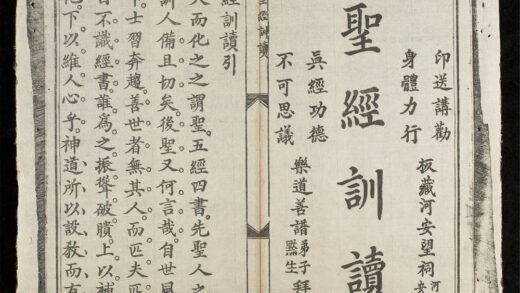 印送講勸
身體力行
板藏河安望祠
聖經訓讀
眞經功德
不可思議
樂道善譜弟子
黙生
拜
聖經訓讀
經訓讀引
大而化之之謂聖。五經四書。先聖人之
訓人備且切矣。後聖又何言哉。自世
下。士習奔趨。善世者無其人。而匹夫匹
目不識經書。誰爲之振聾破聵。上以補
化。下以維人心乎。神道所以設敎而有